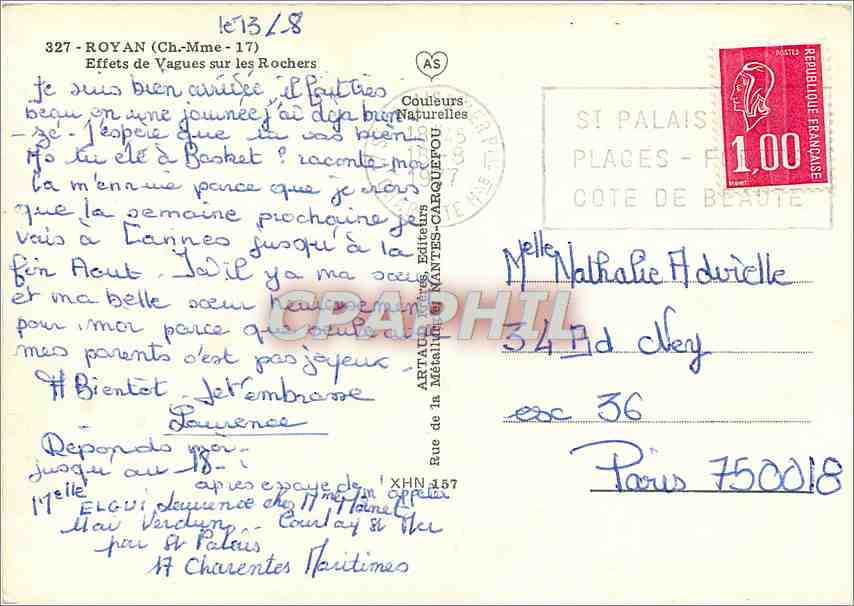 le 13/8
327 - ROYAN (Ch.-Mme - 17)
Effets de Vagues sur les Rochers
Je suis bien arrivée il fait très
beau en une journée j'ai déja bien
- sé - J'espère que tu vas bien
As tu été à Basket ? raconte moi
Ca m'ennuie parce que je crois
que la semaine prochaine je
vais à Cannes jusqu'à la
fin Aout. Là il y a ma sœur
et ma belle sœur heureusement
pour moi parce que seule avec
mes parents c'est pas joyeux -
A Bientot - Je t'embrasse
Laurence
Réponds moi
jusqu'au 18 - !
après essaye de m'appeler
Melle ELGUI Laurence chez Mme
Verdun - Courlay St
par St Palais
17 Charentes Maritimes
AS
Couleurs
Naturelles
ARTAUD Frères, Editeurs
Rue de la Métallurgie, NANTES-CARQUEFOU
XHN 157
1977
ST PALAIS
PLAGES -
COTE DE BEAUTE
POSTES
REPUBLIQUE FRANÇAISE
1,00
Melle Nathalie Advielle
34 Bd Ney
esc 36
Paris 750018
CPAPHIL